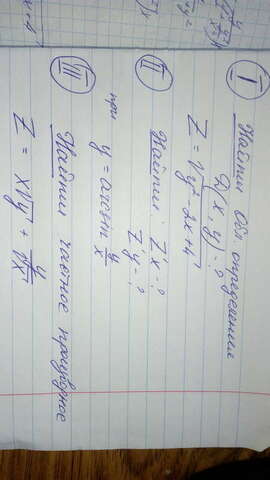 I Найти обл. определения
D(x,y) - ?
Z = √(y² - 2x + 4)
II Найти: Z'x - ?
Z'y - ?
при y = arcsin y/x
III Найти частное производное
Z = x√y + y/√x